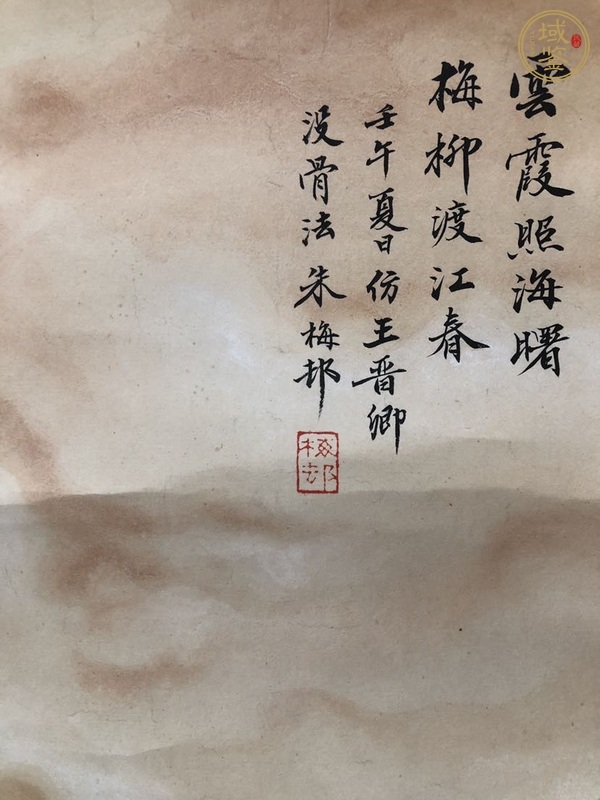 雲霞照海曙
梅柳渡江春
壬午夏日仿王晋卿
没骨法朱梅邨
梅邨
域鉴